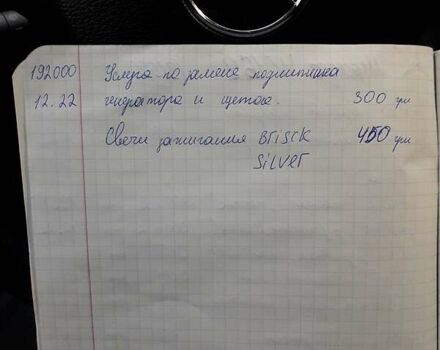 192000 Услуга по замене подшипника
12.22 генератора и щеток. 300 грн
Свечи зажигания Brisck 450 грн
Silver